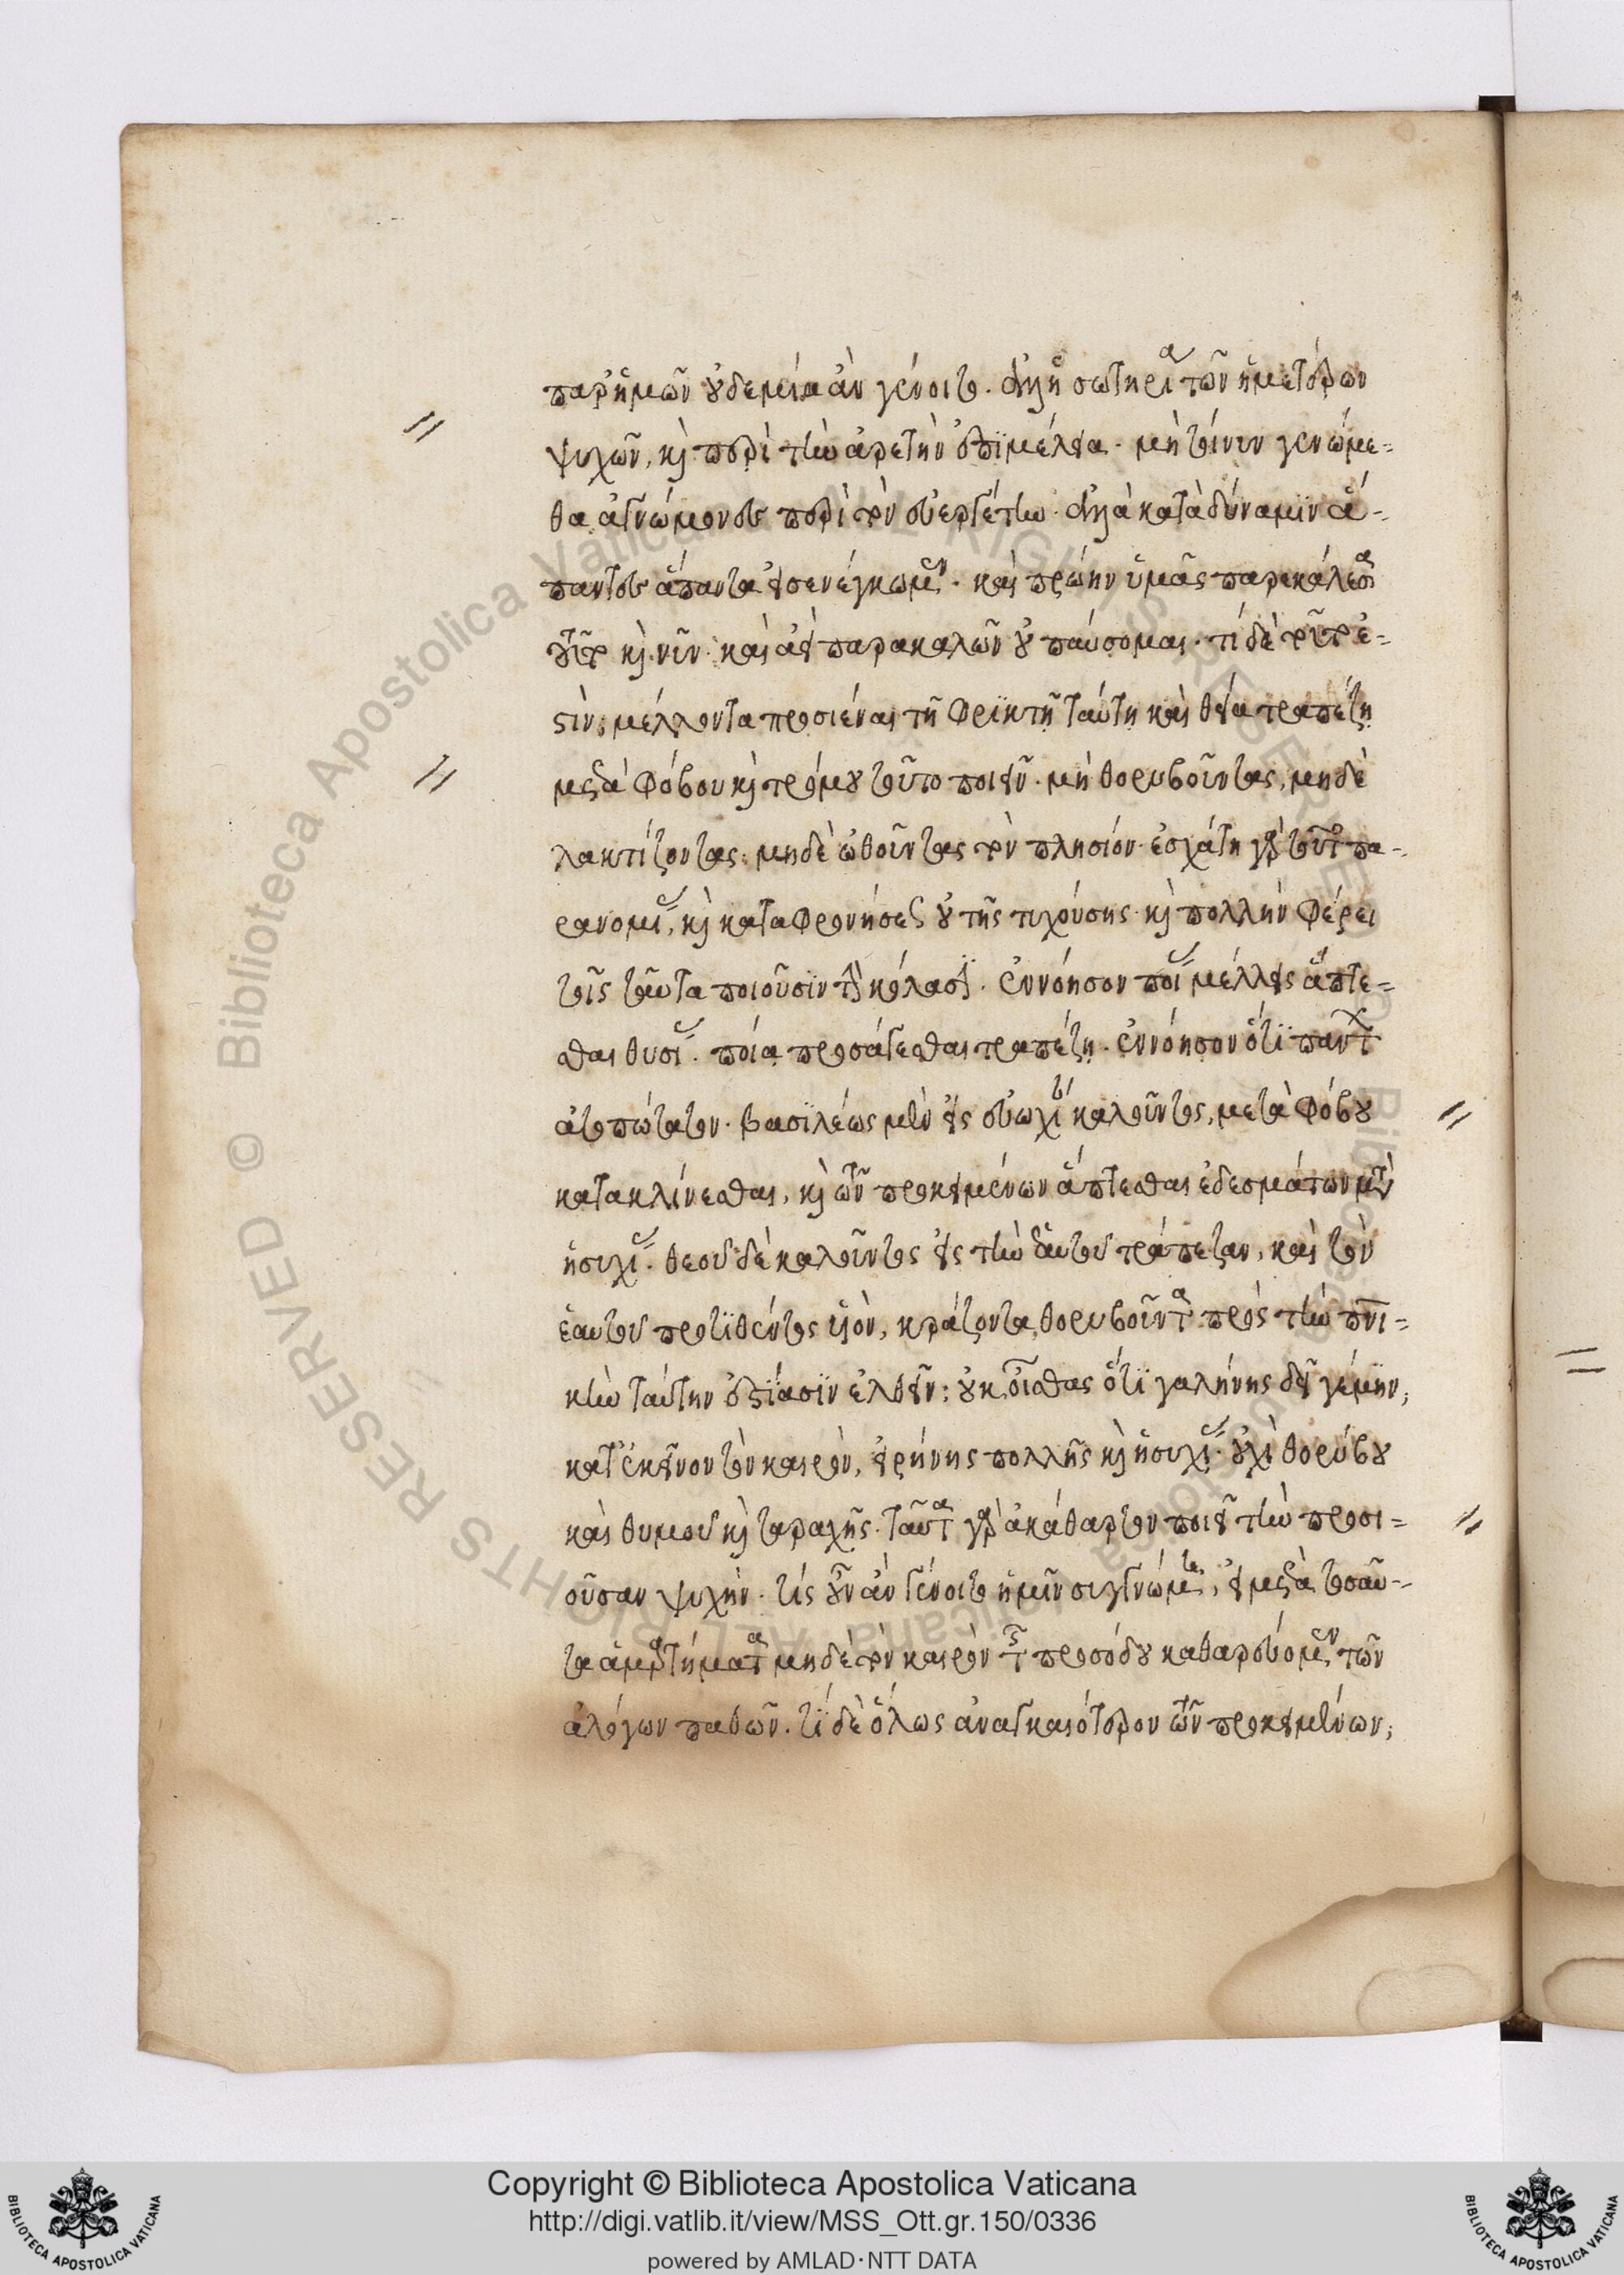 παρ' ἡμῶν οὐδεμία ἂν γένοιτο. ἀλλ' ἢ σωτηρία τῶν ἡμετέρων
ψυχῶν, καὶ περὶ τὴν ἀρετὴν ἐπιμέλεια. μὴ τοίνυν γενώμε-
θα ἀγνώμονες περὶ τὸν εὐεργέτην. ἀλλὰ κατὰ δύναμιν ἅ-
παντες ἅπαντα εἰσενέγκωμεν. καὶ πρώην ὑμᾶς παρεκάλεσα
τοῦτο καὶ νῦν. καὶ ἀεὶ παρακαλῶν οὐ παύσομαι. τί δὲ τοῦτό ἐ-
στιν; μέλλοντα προσιέναι τῇ φρικτῇ ταύτῃ καὶ θεία τραπέζῃ
μετὰ φόβου καὶ τρόμου τοῦτο ποιεῖν. μὴ θορυβοῦντας, μηδὲ
λακτίζοντας. μηδὲ ὠθοῦντας τὸν πλησίον. ἐσχάτη γὰρ τοῦτο πα-
ρανομία, καὶ καταφρονήσεως οὐ τῆς τυχούσης. καὶ πολλὴν φέρει
τοῖς ταῦτα ποιοῦσιν τὴν κόλασιν. ἐννόησον ποίας μέλλεις ἅπτε-
σθαι θυσίας. ποία προσάγεσθαι τραπέζῃ. ἐννόησον ὅτι πάντων
ἀτοπώτατον. βασιλέως μὲν εἰς εὐωχίαν καλοῦντος, μετὰ φόβου
κατακλίνεσθαι, καὶ τῶν προκειμένων ἅπτεσθαι ἐδεσμάτων μετὰ
ἡσυχίας. θεοῦ δὲ καλοῦντος εἰς τὴν ἑαυτοῦ τράπεζαν, καὶ τὸν
ἑαυτοῦ προτιθέντος υἱὸν, κράζοντα θορυβοῦντα πρὸς τὴν πνι-
κὴν ταύτην ἑστίασιν ἐλθεῖν; οὐκ οἶσθας ὅτι γαλήνης δεῖ γέμειν,
κατ' ἐκεῖνον τὸν καιρὸν, εἰρήνης πολλῆς καὶ ἡσυχίας. οὐχὶ θορύβου
καὶ θυμοῦ καὶ ταραχῆς. ταῦτα γὰρ ἀκάθαρτον ποιεῖ τὴν προσι-
οῦσαν ψυχήν. τίς οὖν ἂν γένοιτο ἡμῖν συγγνώμη, εἰ μετὰ τοσαῦ-
τα ἁμαρτήματα μηδὲ τὸν καιρὸν τῆς προσόδου καθαρεύομεν τῶν
ἀλόγων παθῶν. τί δὲ ὅλως ἀναγκαιότερον τῶν προκειμένων;
Copyright © Biblioteca Apostolica Vaticana
http://digi.vatlib.it/view/MSS_Ott.gr.150/0336
powered by AMLAD·NTT DATA